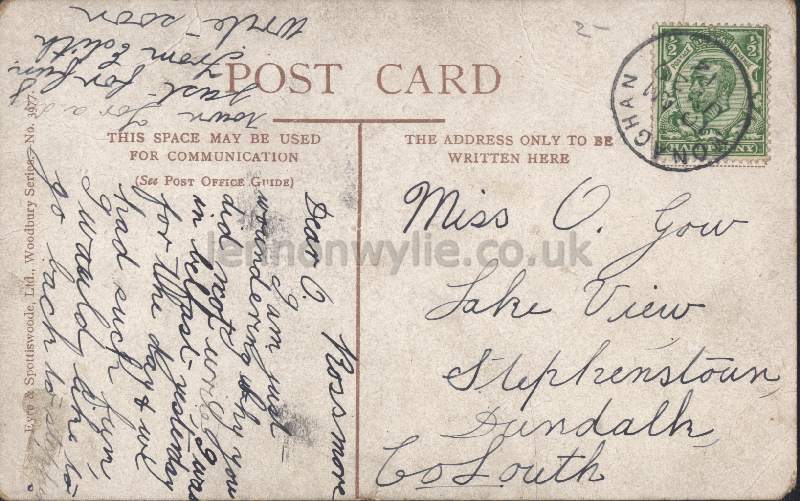 POST CARD
THIS SPACE MAY BE USED
FOR COMMUNICATION
(See Post Office Guide)
THE ADDRESS ONLY TO BE
WRITTEN HERE
Eyre & Spottiswoode, Ltd., Woodbury Series. No. 3977.
½ ½
HALFPENNY
ONAGHAN
Miss O. Gow
Lake View
Stephenstown
Dundalk
Co Louth
Rossmore
Dear O.
I am just
woundering why you
did not write I was
in belfast yesterday
for the day & we
had such fun,
would like to
go back to
town for a d
just for fun
From Edith
Write soon
lennonwylie.co.uk
2-